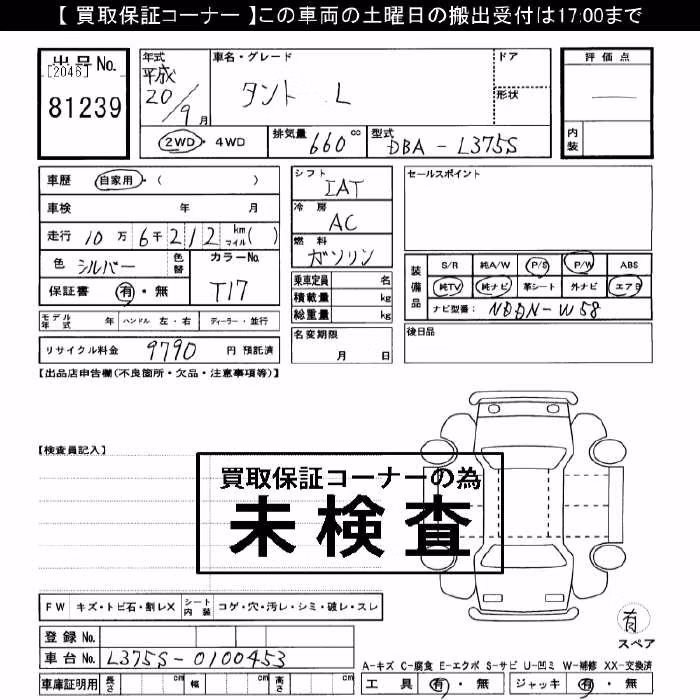 【 買取保証コーナー 】この車両の土曜日の搬出受付は17:00まで
出品No.
[2046]
81239
年式
平成
20/9月
車名・グレード
タント L
ドア
形状
評価点
内装
2WD・4WD
排気量 660 cc
型式 DBA - L375S
車歴 自家用・( )
車検 年 月
走行 10万6千212 km マイル( )
色 シルバー 色替
カラーNo. T17
保証書 有・無
シフト IAT
冷房 AC
燃料 ガソリン
乗車定員 名
積載量 kg
総重量 kg
セールスポイント
装備品
S/R 純A/W P/S P/W ABS
純TV 純ナビ 革シート 外ナビ エアB
ナビ型番: NDDN-W58
モデル年式 年 ハンドル 左・右 ディーラー・並行
名変期限
月 日
後日品
リサイクル料金 9790 円 預託済
【出品店申告欄(不良箇所・欠品・注意事項等)】
【検査員記入】
買取保証コーナーの為
未検査
FW キズ・トビ石・割レX シート内装 コゲ・穴・汚レ・シミ・破レ・スレ
登録No.
車台No. L375S-0100453
車庫証明用 長さ cm 幅 cm 高さ cm
有
スペア
A-キズ C-腐食 E-エクボ S-サビ U-凹ミ W-補修 XX-交換済
工具 有・無 ジャッキ 有・無